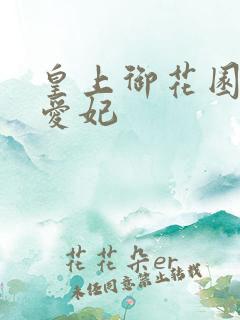 皇上御花园
愛妃
花花朵er
未经同意禁止转载